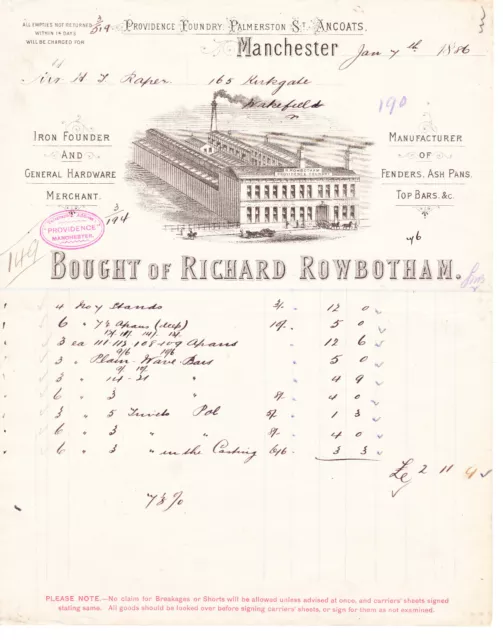 ALL EMPTIES NOT RETURNED
WITHIN 14 DAYS
WILL BE CHARGED FOR
PROVIDENCE FOUNDRY, PALMERSTON ST. ANCOATS,
Manchester Jan 7th 1886
H J Raper 165 Kirkgate
Wakefield
190
IRON FOUNDER
AND
GENERAL HARDWARE
MERCHANT.
R. ROWBOTHAM
MANUFACTURER
OF
FENDERS, ASH PANS,
TOP BARS, &c.
"PROVIDENCE"
MANCHESTER.
3/194
149
BOUGHT OF RICHARD ROWBOTHAM.
4 No 4 Stands 3/. 12 0
6 " 7½ Apans (deep) 10/. 5 0
3 ea 111 112 108 109 Apans 12 6
3 " Plain Wave Bars 5 0
3 " 14-21 " 4 9
6 " 3 " 8/. 4 0
3 " 5 Pol 5/. 1 3
6 " 3 " " 8/. 4 0
6 " 3 " in the Casting 6/6. 3 3
£ 2 11 9
7½ %
PLEASE NOTE.—No claim for Breakages or Shorts will be allowed unless advised at once, and carriers' sheets signed
stating same. All goods should be looked over before signing carriers' sheets, or sign for them as not examined.